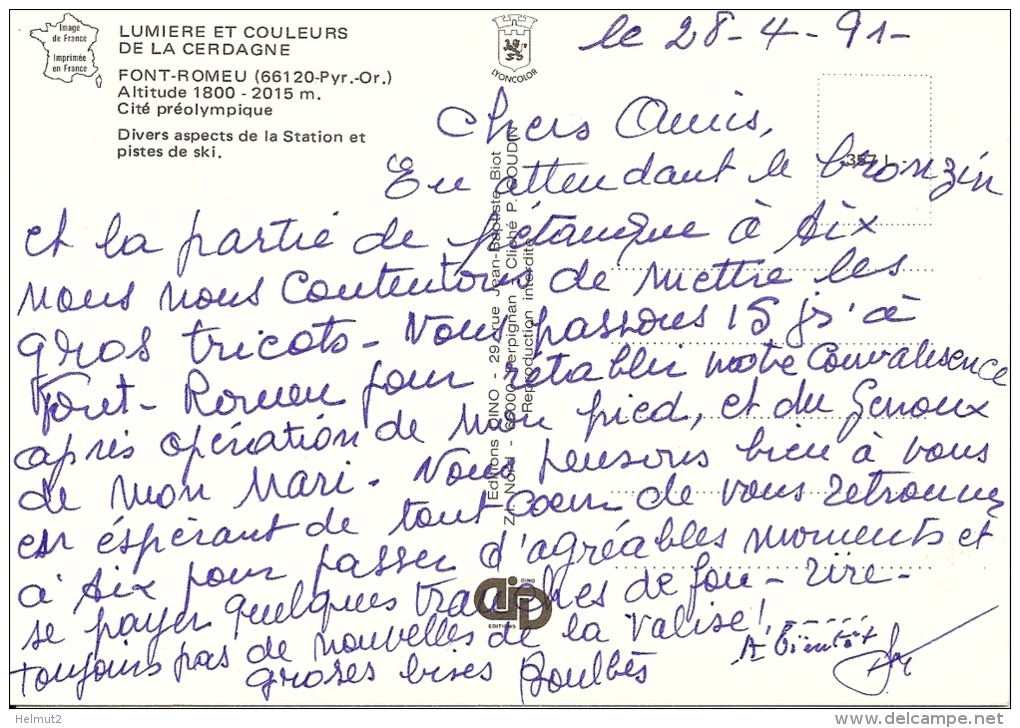 Image
de France
Imprimée
en France
LUMIERE ET COULEURS
DE LA CERDAGNE
FONT-ROMEU (66120-Pyr.-Or.)
Altitude 1800 - 2015 m.
Cité préolympique
Divers aspects de la Station et
pistes de ski.
LYONCOLOR
le 28-4-91-
Chers Amis,
En attendant le bronzin
et la partie de pétanque à Aix
nous nous contentons de mettre les
gros tricots - Nous passons 15 jrs à
Font-Romeu pour rétablir notre Convalescence
après opération de mon pied, et du Genoux
de mon Mari. Nous pensons bien à vous
en éspérant de tout coeur de vous retrouver
à Aix pour passer d'agréables moments et
se payer quelques tranches de fou-rire-
toujours pas de nouvelles de la valise!
A bientôt
groses bises Boulbès
Editions DINO - 29, rue Jean-Baptiste Biot
Z.I. Nord - 66000 Perpignan - Cliché P. BOUDIN
Reproduction interdite
DINO
EDITIONS
Helmut2
www.delcampe.net